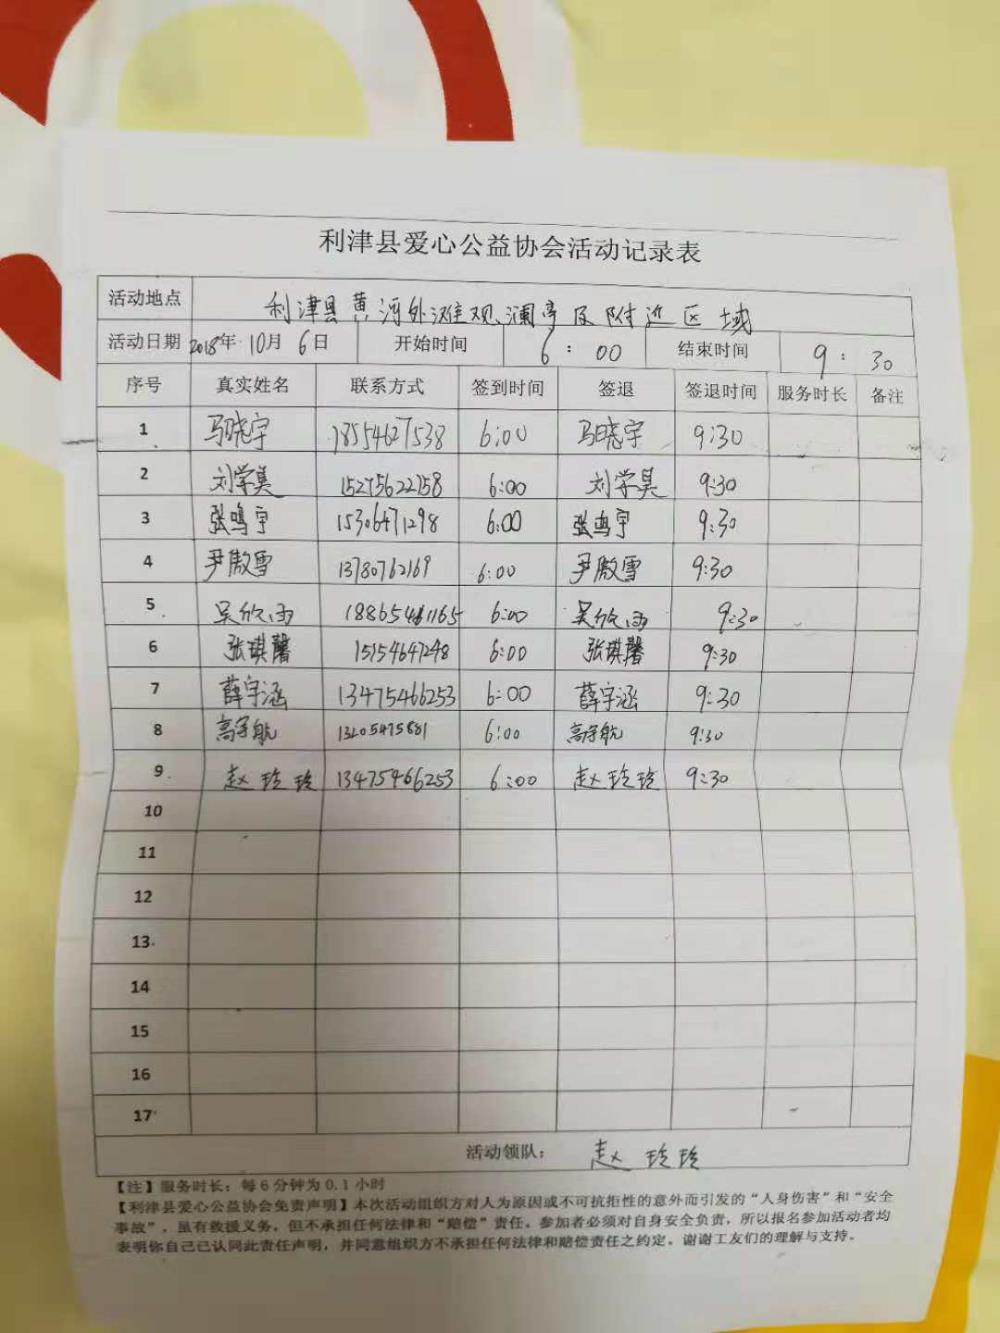 利津县爱心公益协会活动记录表
活动地点 利津县黄河外滩观澜亭及附近区域
活动日期 2018年 10月 6日 开始时间 6：00 结束时间 9：30
序号 真实姓名 联系方式 签到时间 签退 签退时间 服务时长 备注
1 马晓宇 18554627538 6:00 马晓宇 9:30
2 刘学昊 15275622758 6:00 刘学昊 9:30
3 张鸣宇 15306471298 6:00 张鸣宇 9:30
4 尹傲雪 13780762169 6:00 尹傲雪 9:30
5 吴欣雨 6:00 吴欣雨 9:30
6 张琪馨 15154647248 6:00 张琪馨 9:30
7 薛宇涵 13475466253 6:00 薛宇涵 9:30
8 高子航 6:00 高子航 9:30
9 赵玲玲 13475466253 6:00 赵玲玲 9:30
10
11
12
13
14
15
16
17
活动领队： 赵玲玲
【注】服务时长：每6分钟为0.1小时
【利津县爱心公益协会免责声明】本次活动组织方对人为原因或不可抗拒性的意外而引发的“人身伤害”和“安全
事故”，虽有救援义务，但不承担任何法律和“赔偿”责任。参加者必须对自身安全负责，所以报名参加活动者均
表明你自己已认同此责任声明，并同意组织方不承担任何法律和赔偿责任之约定。谢谢工友们的理解与支持。